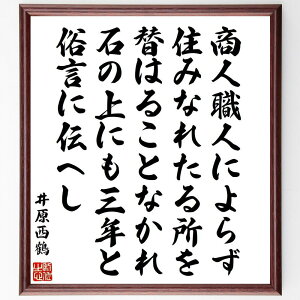 商人職人によらず
住みなれたる所を
替はることなかれ
石の上にも三年と
俗言に伝へし
井原西鶴